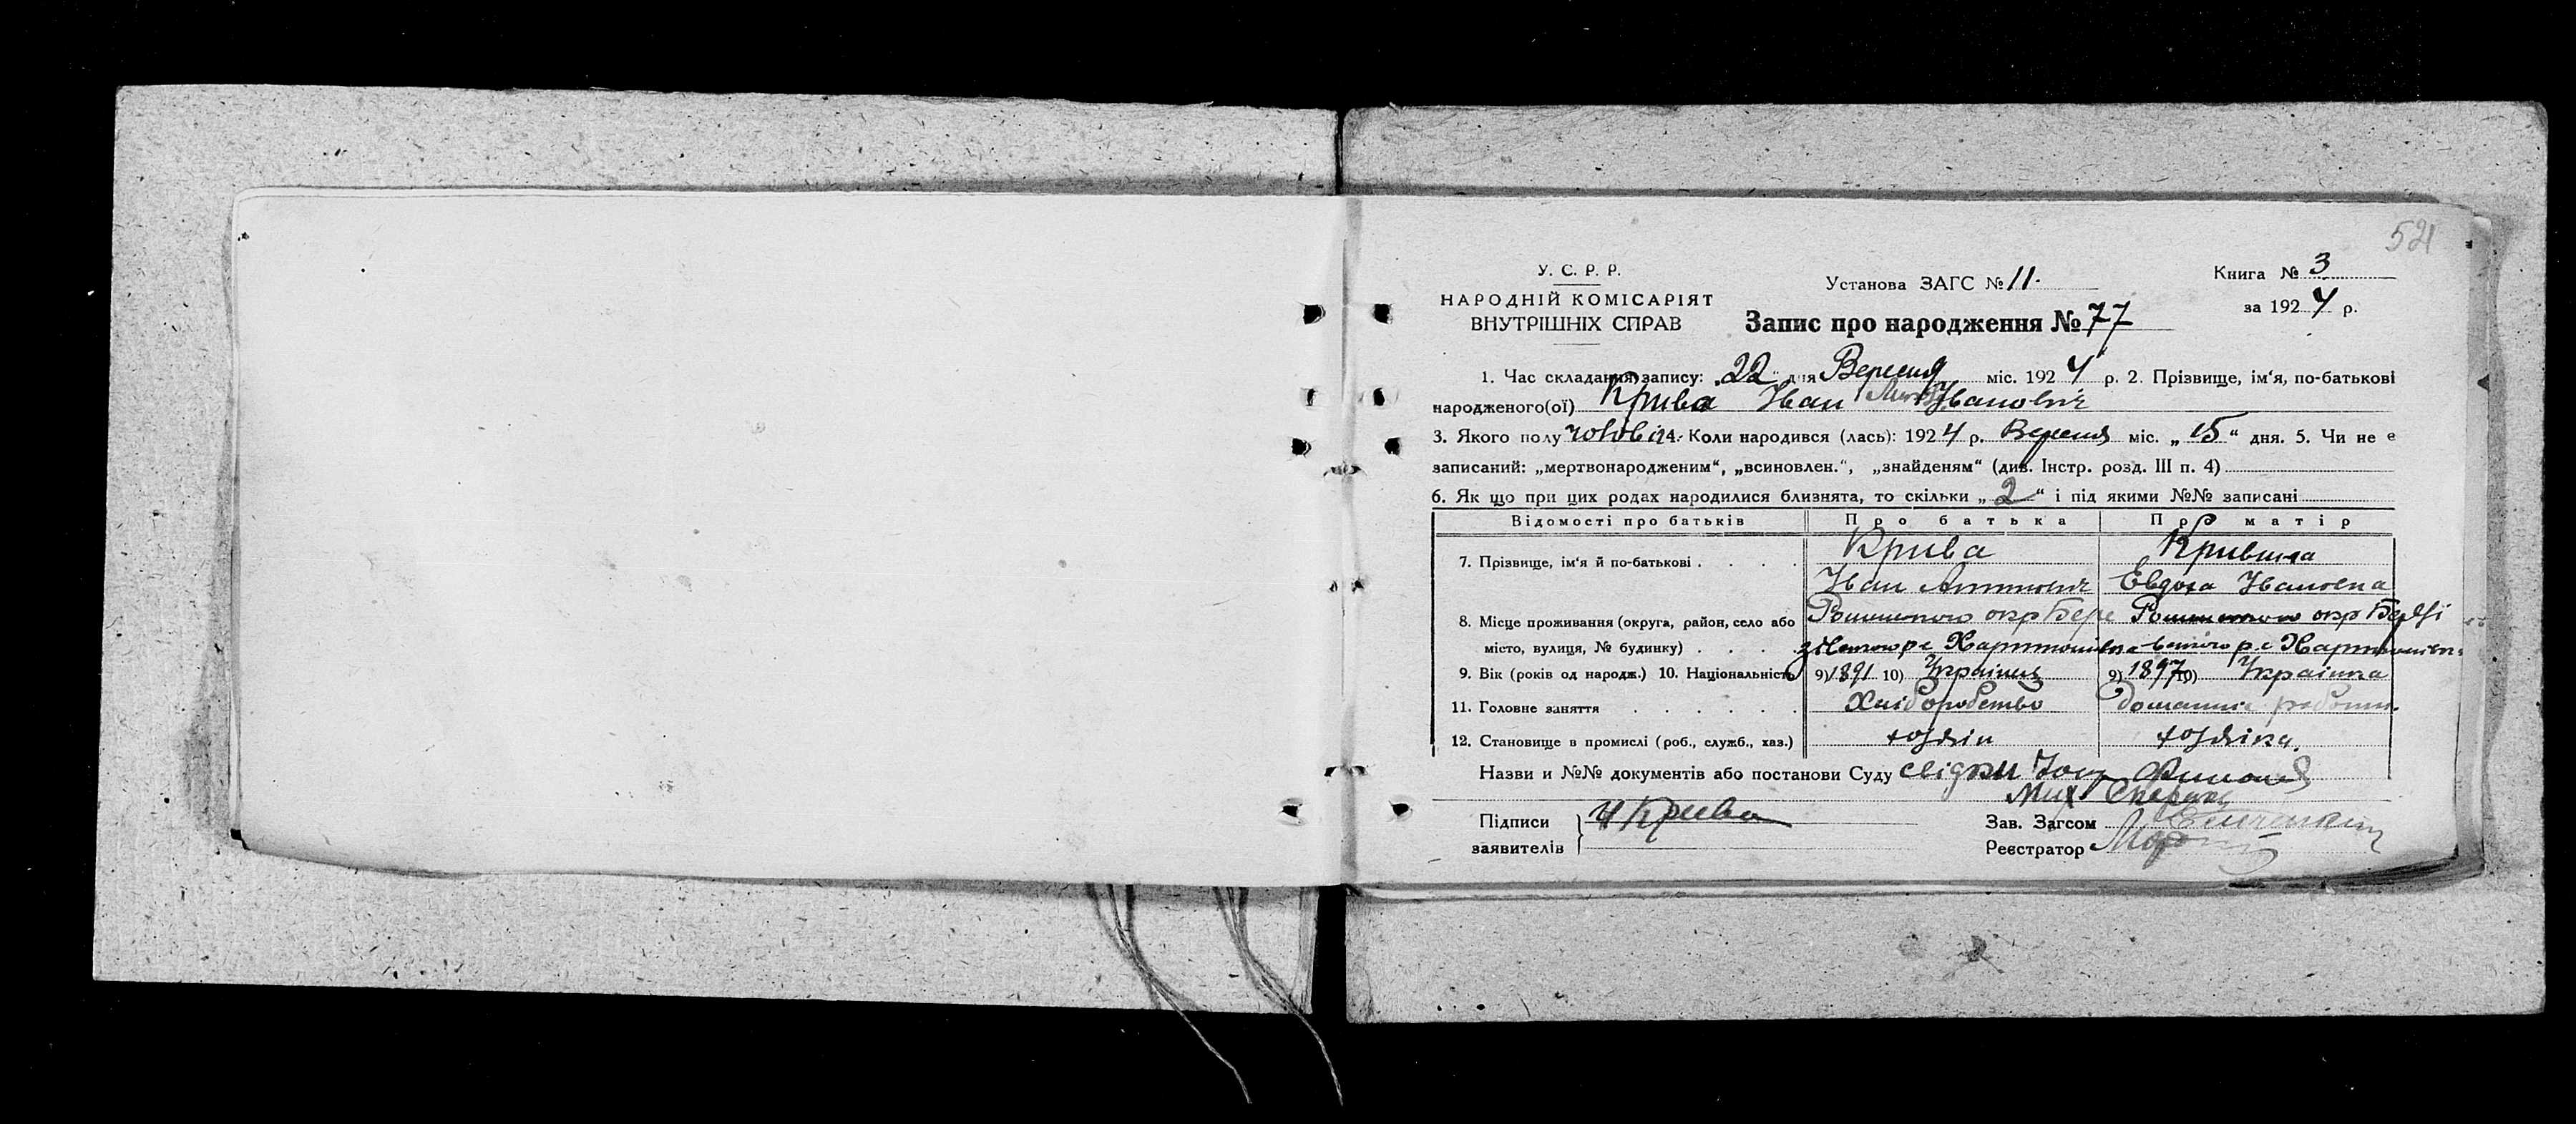 521
У. С. Р. Р.
НАРОДНІЙ КОМІСАРІЯТ
ВНУТРІШНІХ СПРАВ
Установа ЗАГС № 11.
Запис про народження № 77
Книга № 3
за 1924 р.
1. Час складання запису: „22" дня Вересня міс. 1924 р. 2. Прізвище, ім'я, по-батькові
народженого(ої) Крива Іван Іванович
3. Якого полу чоловіч 4. Коли народився (лась): 1924 р. Вересня міс. „15" дня. 5. Чи не є
записаний: „мертвонародженим", „всиновлен.", „знайденям" (див. Інстр. розд. III п. 4)
6. Як що при цих родах народилися близнята, то скільки „2" і під якими №№ записані
Відомості про батьків Про батька Про матір
7. Прізвище, ім'я й по-батькові . . . . Крива Кривиха
Іван Антонович Евдоха Івановна
8. Місце проживання (округа, район, село або Роменського окр Бере Роменського окр Бере
місто, вулиця, № будинку) . . . .
9. Вік (років од народж.) 10. Національність 9) 1891 10) Українець 9) 1897 10) Українка
11. Головне заняття . . . . . . Хліборобство домашні роботи.
12. Становище в промислі (роб., служб., хаз.) хазяїн хазяїка.
Назви и №№ документів або постанови Суду свідки
Мих
Підписи
заявителів
И Крива
Зав. Загсом
Реєстратор